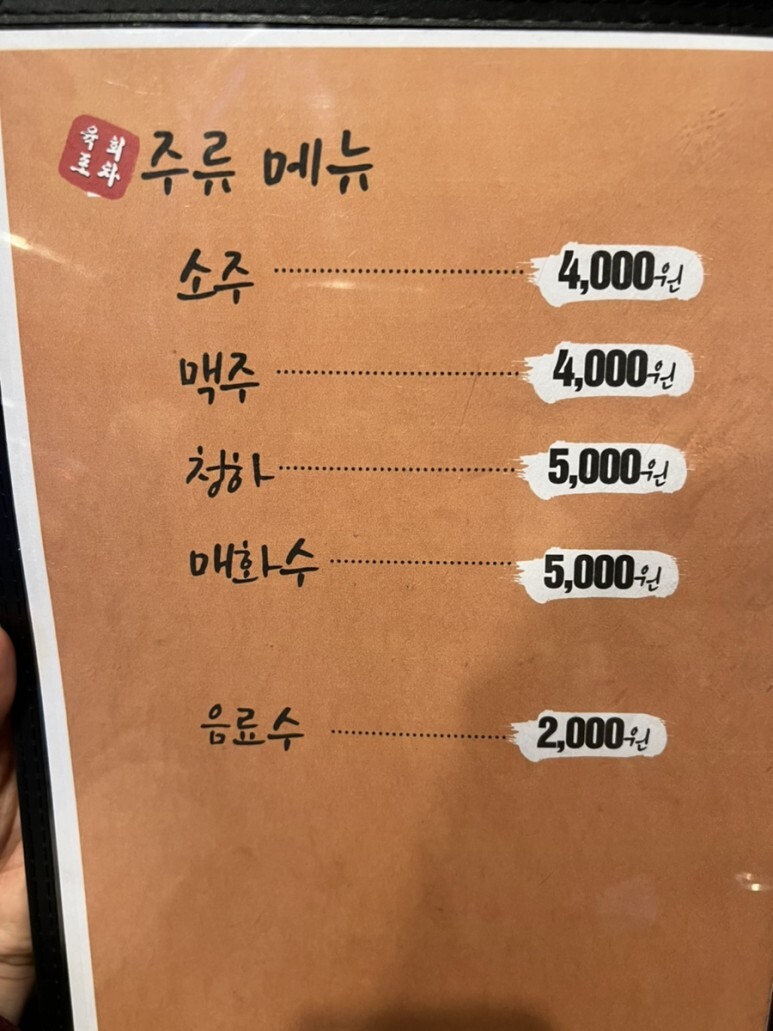 육회
포차
주류 메뉴
소주 4,000원
맥주 4,000원
청하 5,000원
매화수 5,000원
음료수 2,000원